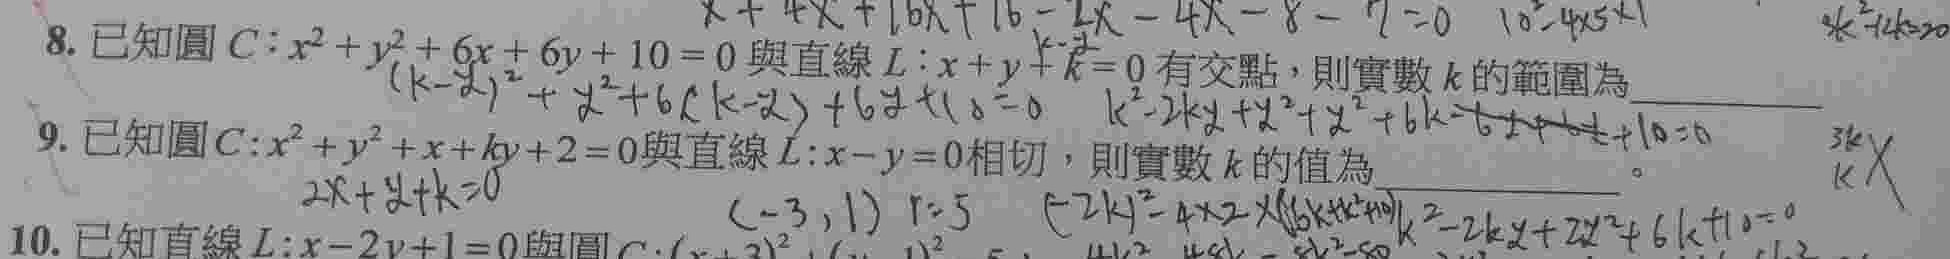 x + 4x + 16x + 16 - 2x - 4x - 8 - 7 = 0 10² - 4x5+1
8. 已知圓 C : x² + y² + 6x + 6y + 10 = 0 與直線 L : x + y + k = 0 有交點，則實數 k 的範圍為
(k-y)² + y² + 6(k-y) + 6y + 10 = 0 k² - 2ky + y² + y² + 6k + 10 = 0
9. 已知圓 C : x² + y² + x + ky + 2 = 0 與直線 L : x - y = 0 相切，則實數 k 的值為 。
2x + y + k = 0 (-3, 1) r = 5 (-2k)² - 4x2x(6k+k²+10) k² - 2ky + 2y² + 6k + 10 = 0
10. 已知直線 L : x - 2y + 1 = 0 與圓 C : (x + 3)² + (y - 1)² = 5